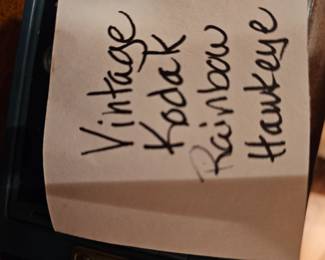 Vintage
Kodak
Rainbow
Hawkeye